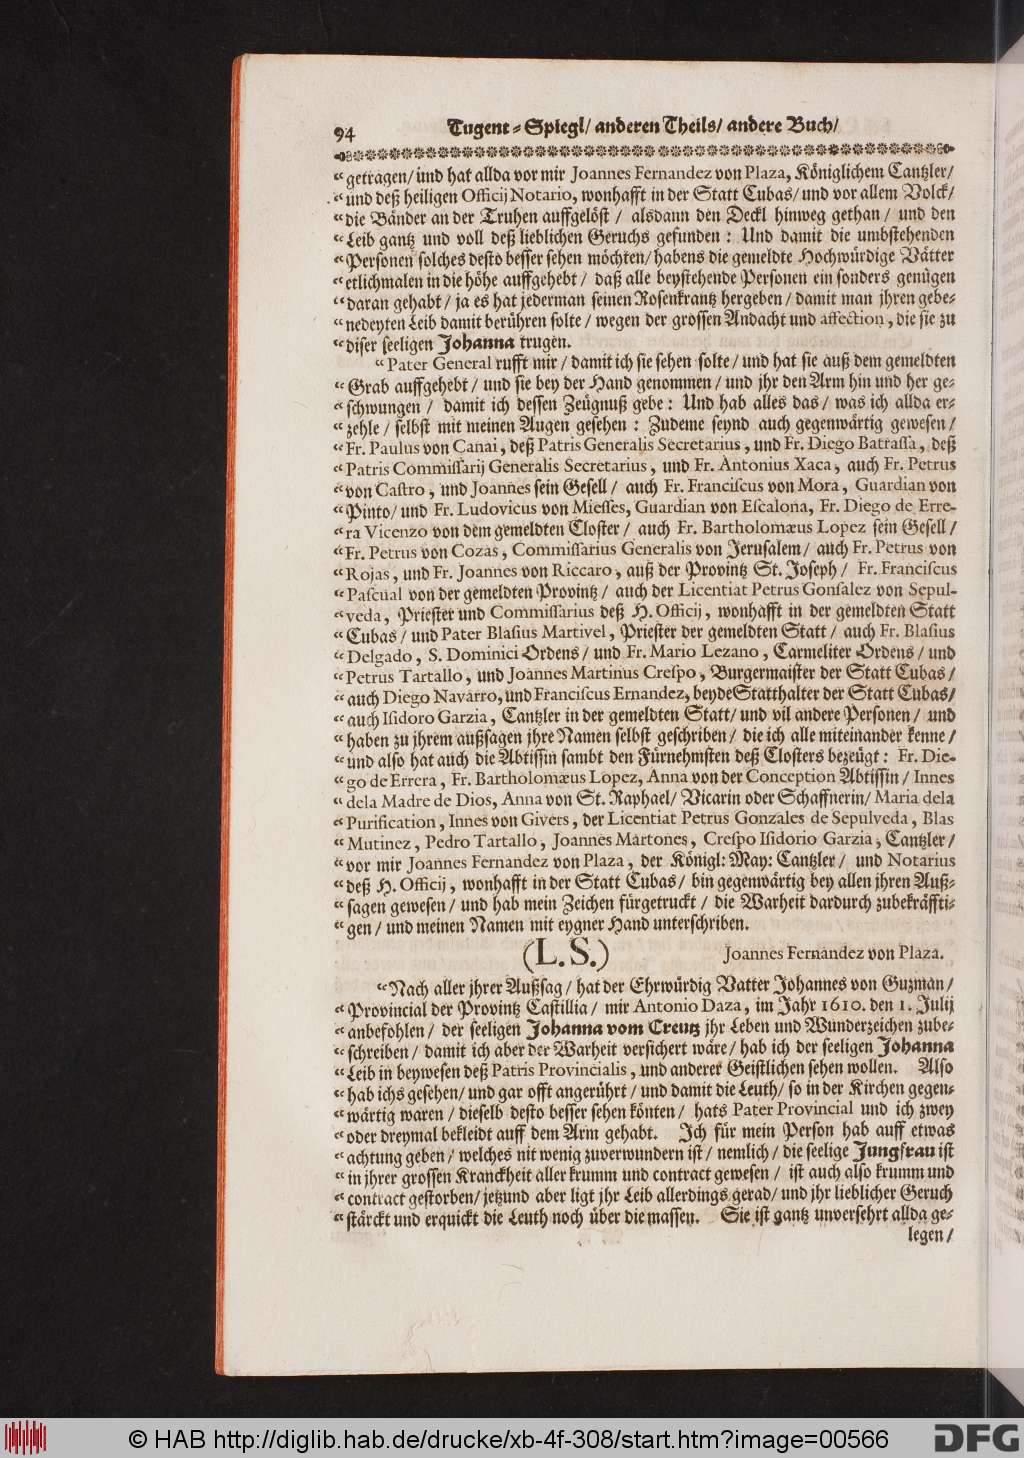 94 Tugent-Spiegl/ anderen Theils/ andere Buch/
“getragen/ und hat allda vor mir Joannes Fernandez von Plaza, Königlichem Cantzler/
“und deß heiligen Officij Notario, wonhafft in der Statt Cubas/ und vor allem Volck/
“die Bänder an der Truhen auffgelöst / alsdann den Deckl hinweg gethan / und den
“Leib gantz und voll deß lieblichen Geruchs gefunden : Und damit die umbstehenden
“Personen solches desto besser sehen möchten/ habens die gemeldte Hochwürdige Vätter
“etlichmalen in die höhe auffgehebt / daß alle beystehende Personen ein sonders genügen
“daran gehabt / ja es hat jederman seinen Rosenkrantz hergeben / damit man jhren gebe-
“nedeyten Leib damit berühren solte / wegen der grossen Andacht und affection, die sie zu
“diser seeligen Johanna trugen.
“Pater General rufft mir / damit ich sie sehen solte / und hat sie auß dem gemeldten
“Grab auffgehebt / und sie bey der Hand genommen / und jhr den Arm hin und her ge-
“schwungen / damit ich dessen Zeügnuß gebe : Und hab alles das / was ich allda er-
“zehle / selbst mit meinen Augen gesehen : Zudeme seynd auch gegenwärtig gewesen /
“Fr. Paulus von Canai, deß Patris Generalis Secretarius, und Fr. Diego Batrassa, deß
“Patris Commissarij Generalis Secretarius, und Fr. Antonius Xaca, auch Fr. Petrus
“von Castro, und Joannes sein Gesell / auch Fr. Franciscus von Mora, Guardian von
“Pinto/ und Fr. Ludovicus von Miesses, Guardian von Escalona, Fr. Diego de Erre-
“ra Vicenzo von dem gemeldten Closter / auch Fr. Bartholomæus Lopez sein Gesell /
“Fr. Petrus von Cozas, Commissarius Generalis von Jerusalem / auch Fr. Petrus von
“Rojas, und Fr. Joannes von Riccaro, auß der Provintz St. Joseph / Fr. Franciscus
“Pascual von der gemeldten Provintz / auch der Licentiat Petrus Gonsalez von Sepul-
“veda, Priester und Commissarius deß H. Officij, wonhafft in der gemeldten Statt
“Cubas / und Pater Blasius Martivel, Priester der gemeldten Statt / auch Fr. Blasius
“Delgado, S. Dominici Ordens / und Fr. Mario Lezano, Carmeliter Ordens / und
“Petrus Tartallo, und Joannes Martinus Crespo, Burgermaister der Statt Cubas /
“auch Diego Navarro, und Franciscus Ernandez, beyde Statthalter der Statt Cubas/
“auch Isidoro Garzia, Cantzler in der gemeldten Statt/ und vil andere Personen / und
“haben zu jhrem außsagen jhre Namen selbst geschriben / die ich alle miteinander kenne /
“und also hat auch die Abtissin sambt den Fürnehmsten deß Closters bezeügt : Fr. Die-
“go de Errera, Fr. Bartholomæus Lopez, Anna von der Conception Abtissin / Innes
“dela Madre de Dios, Anna von St. Raphael/ Vicarin oder Schaffnerin/ Maria dela
“Purification, Innes von Givers, der Licentiat Petrus Gonzales de Sepulveda, Blas
“Mutinez, Pedro Tartallo, Joannes Martones, Crespo Isidorio Garzia, Cantzler /
“vor mir Joannes Fernandez von Plaza, der Königl: May: Cantzler / und Notarius
“deß H. Officij, wonhafft in der Statt Cubas / bin gegenwärtig bey allen jhren Auß-
“sagen gewesen / und hab mein Zeichen fürgetruckt / die Warheit dardurch zubekräffti-
“gen / und meinen Namen mit eygner Hand unterschriben.
(L.S.) Joannes Fernandez von Plaza.
“Nach aller jhrer Außsag / hat der Ehrwürdig Vatter Johannes von Guzman /
“Provincial der Provintz Castillia / mir Antonio Daza, im Jahr 1610. den 1. Julij
“anbefohlen / der seeligen Johanna vom Creutz jhr Leben und Wunderzeichen zube-
“schreiben / damit ich aber der Warheit versichert wäre / hab ich der seeligen Johanna
“Leib in beywesen deß Patris Provincialis, und anderer Geistlichen sehen wollen. Also
“hab ichs gesehen/ und gar offt angerührt / und damit die Leuth/ so in der Kirchen gegen-
“wärtig waren / dieselb desto besser sehen könten / hats Pater Provincial und ich zwey
“oder dreymal bekleidt auff dem Arm gehabt. Ich für mein Person hab auff etwas
“achtung geben / welches nit wenig zuverwundern ist / nemlich / die seelige Jungfrau ist
“in jhrer grossen Kranckheit aller krumm und contract gewesen / ist auch also krumm und
“contract gestorben/ jetzund aber ligt jhr Leib allerdings gerad/ und jhr lieblicher Geruch
“stärckt und erquickt die Leuth noch über die massen. Sie ist gantz unversehrt allda ge-
legen /
© HAB http://diglib.hab.de/drucke/xb-4f-308/start.htm?image=00566
DFG